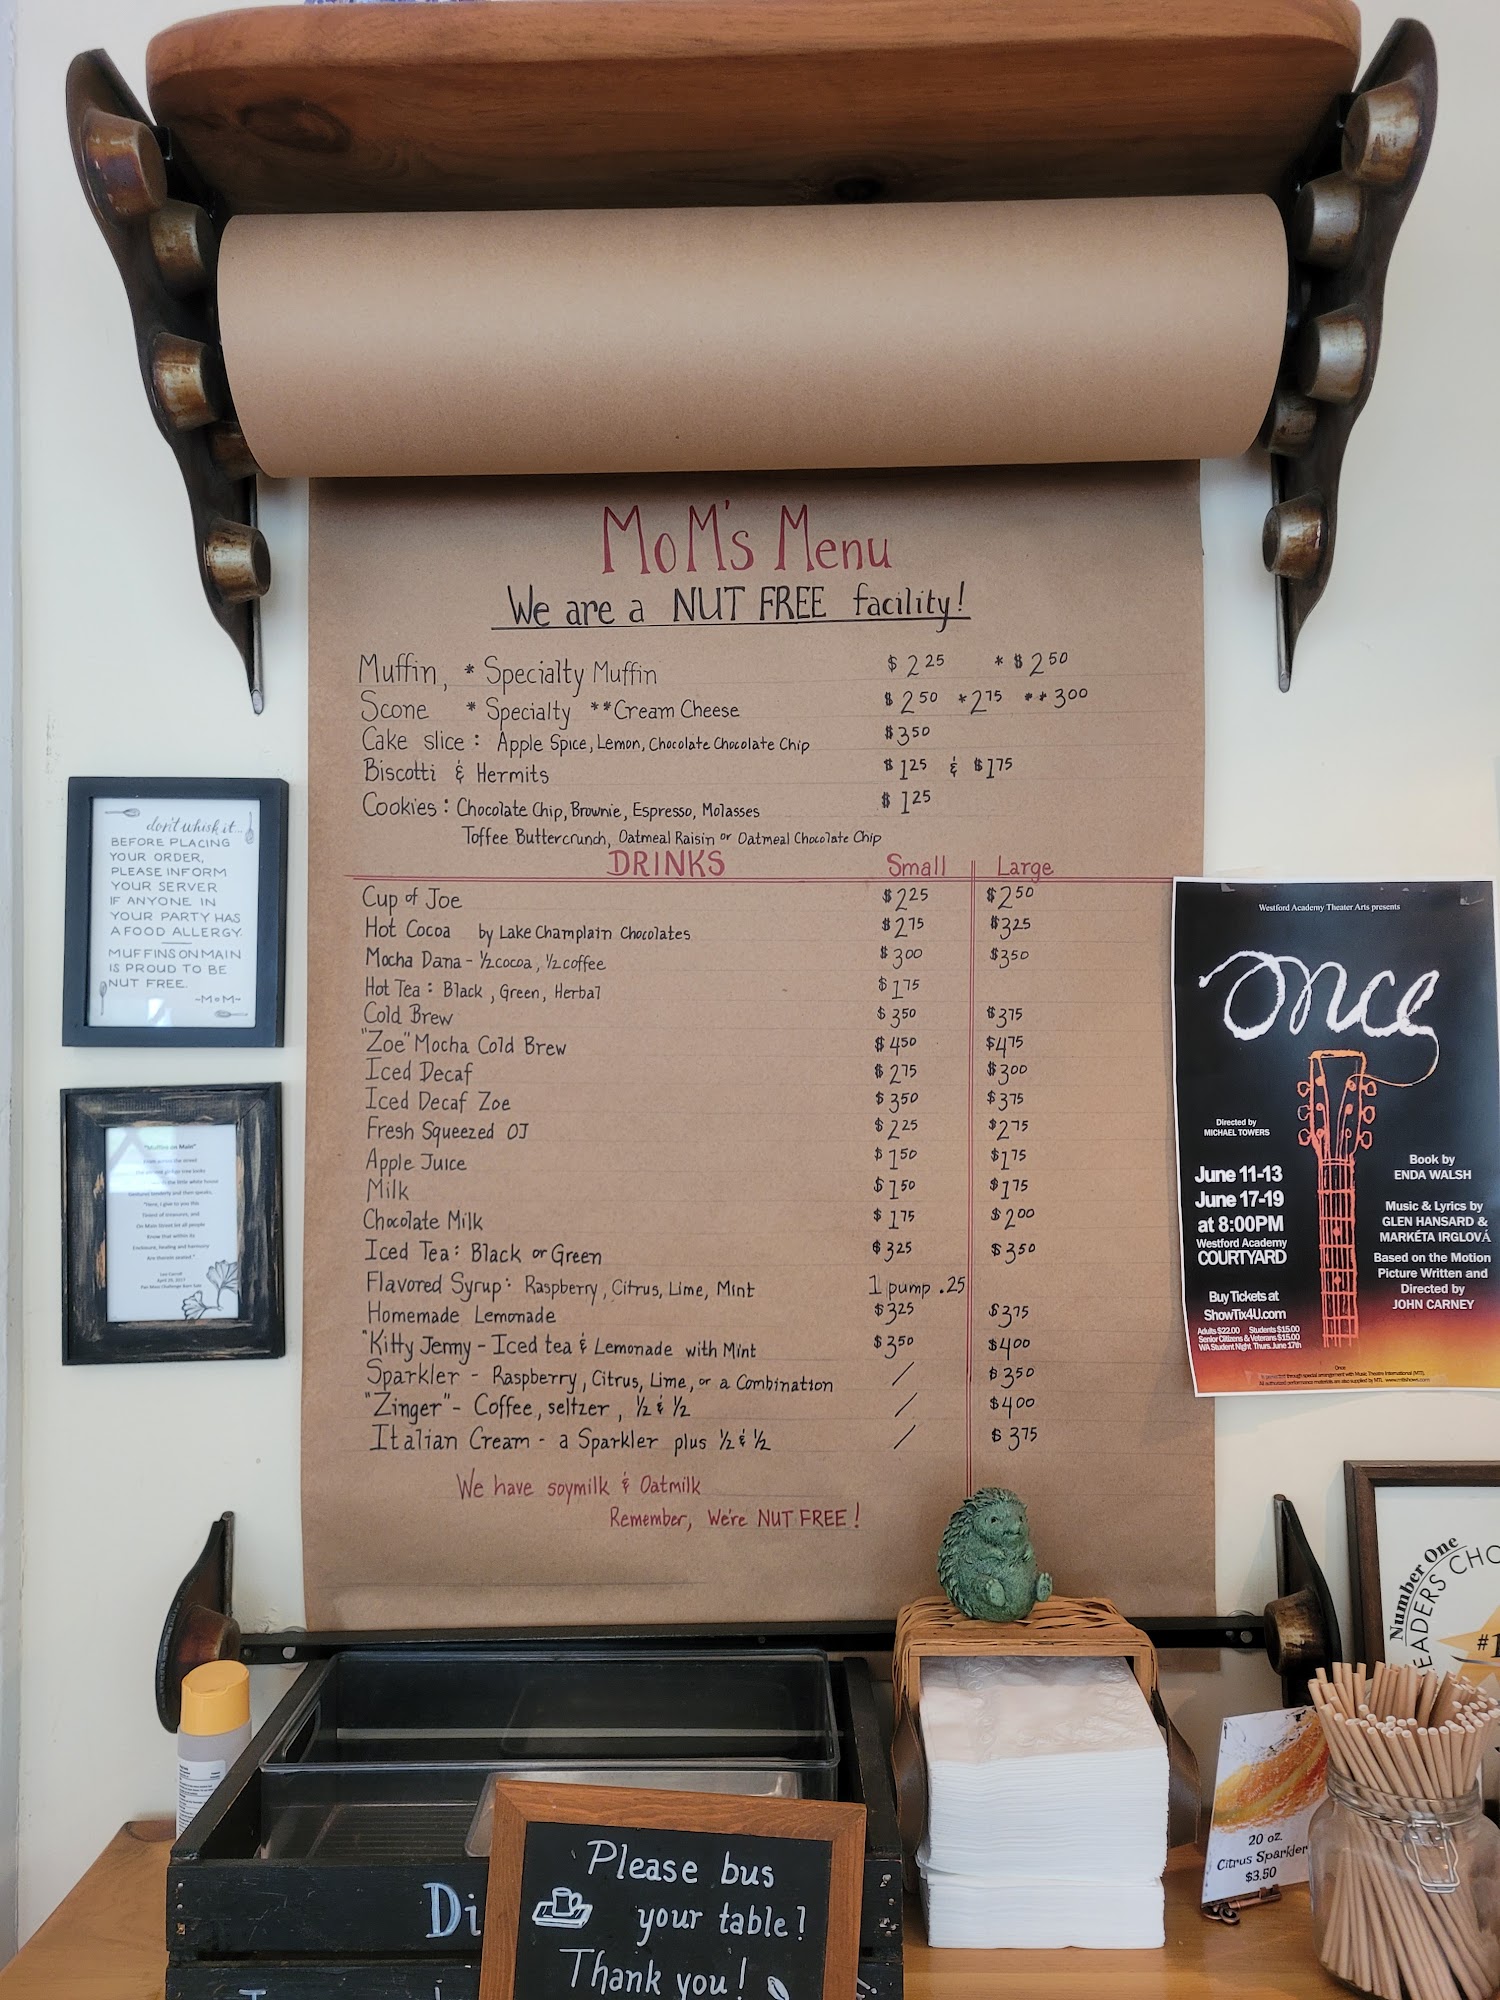 MoM's Menu
We are a NUT FREE facility!
Muffin, * Specialty Muffin $2.25 * $2.50
Scone * Specialty **Cream Cheese $2.50 *2.75 **3.00
Cake slice: Apple Spice, Lemon, Chocolate Chocolate Chip $3.50
Biscotti & Hermits $1.25 & $1.75
Cookies: Chocolate Chip, Brownie, Espresso, Molasses $1.25
Toffee Buttercrunch, Oatmeal Raisin or Oatmeal Chocolate Chip
DRINKS Small Large
Cup of Joe $2.25 $2.50
Hot Cocoa by Lake Champlain Chocolates $2.75 $3.25
Mocha Dana - ½ cocoa, ½ coffee $3.00 $3.50
Hot Tea: Black, Green, Herbal $1.75
Cold Brew $3.50 $3.75
"Zoe" Mocha Cold Brew $4.50 $4.75
Iced Decaf $2.75 $3.00
Iced Decaf Zoe $3.50 $3.75
Fresh Squeezed OJ $2.25 $2.75
Apple Juice $1.50 $1.75
Milk $1.50 $1.75
Chocolate Milk $1.75 $2.00
Iced Tea: Black or Green $3.25 $3.50
Flavored Syrup: Raspberry, Citrus, Lime, Mint 1 pump .25
Homemade Lemonade $3.25 $3.75
"Kitty Jenny - Iced tea & Lemonade with Mint $3.50 $4.00
Sparkler - Raspberry, Citrus, Lime, or a Combination / $3.50
"Zinger" - Coffee, seltzer, ½ & ½ / $4.00
Italian Cream - a Sparkler plus ½ & ½ / $3.75
We have soymilk & Oatmilk
Remember, We're NUT FREE!
don't whisk it...
BEFORE PLACING
YOUR ORDER,
PLEASE INFORM
YOUR SERVER
IF ANYONE IN
YOUR PARTY HAS
A FOOD ALLERGY.
MUFFINS ON MAIN
IS PROUD TO BE
NUT FREE.
~MoM~
"Muffins on Main"
the little white house
tenderly and then speaks,
"Here, I give to you this
Tiniest of treasures, and
On Main Street let all people
Know that within its
Enclosure, healing and harmony
Are therein sealed."
Westford Academy Theater Arts presents
once
Directed by
MICHAEL TOWERS
June 11-13
June 17-19
at 8:00PM
Westford Academy
COURTYARD
Buy Tickets at
ShowTix4U.com
Adults $22.00 Students $15.00
Senior Citizens & Veterans $15.00
WA Student Night Thurs. June 17th
Book by
ENDA WALSH
Music & Lyrics by
GLEN HANSARD &
MARKÉTA IRGLOVÁ
Based on the Motion
Picture Written and
Directed by
JOHN CARNEY
Once
is presented through special arrangement with Music Theatre International (MTI).
All authorized performance materials are also supplied by MTI. www.mtishows.com
Number One
EADERS CHO
#1
20 oz.
Citrus Sparkler
$3.50
Di
Please bus
your table!
Thank you!